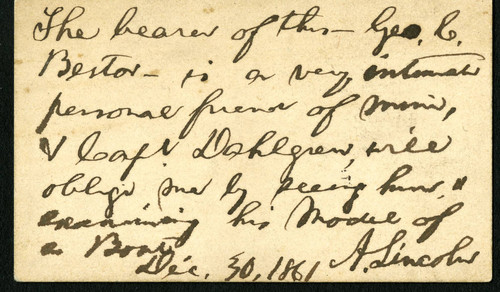 The bearer of this— Geo. C.
Bestor— is a very intimate
personal friend of mine,
& Capt Dahlgren, will
oblige me by seeing him, &
examining his Model of
a Boat.
Dec. 30, 1861 A. Lincoln